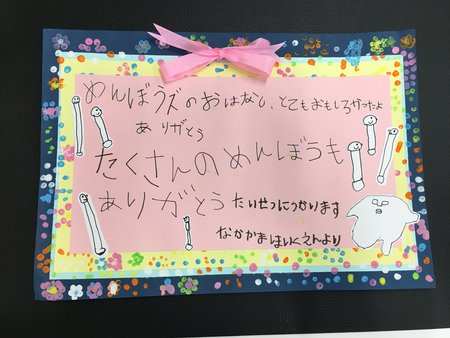 めんぼうズのおはなし、とてもおもしろかったよ
ありがとう
たくさんのめんぼうも
ありがとう たいせつにつかいます
なかがまほいくえんより